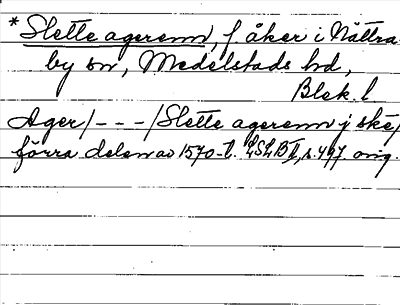 * Slette agerenn, f åker i Nättra-
by sn, Medelstads hd,
Blek. l
Ager/ - - - /Slette agerenn j ske,
förra delen av 1570-t. LSLB II, s. 497 orig.